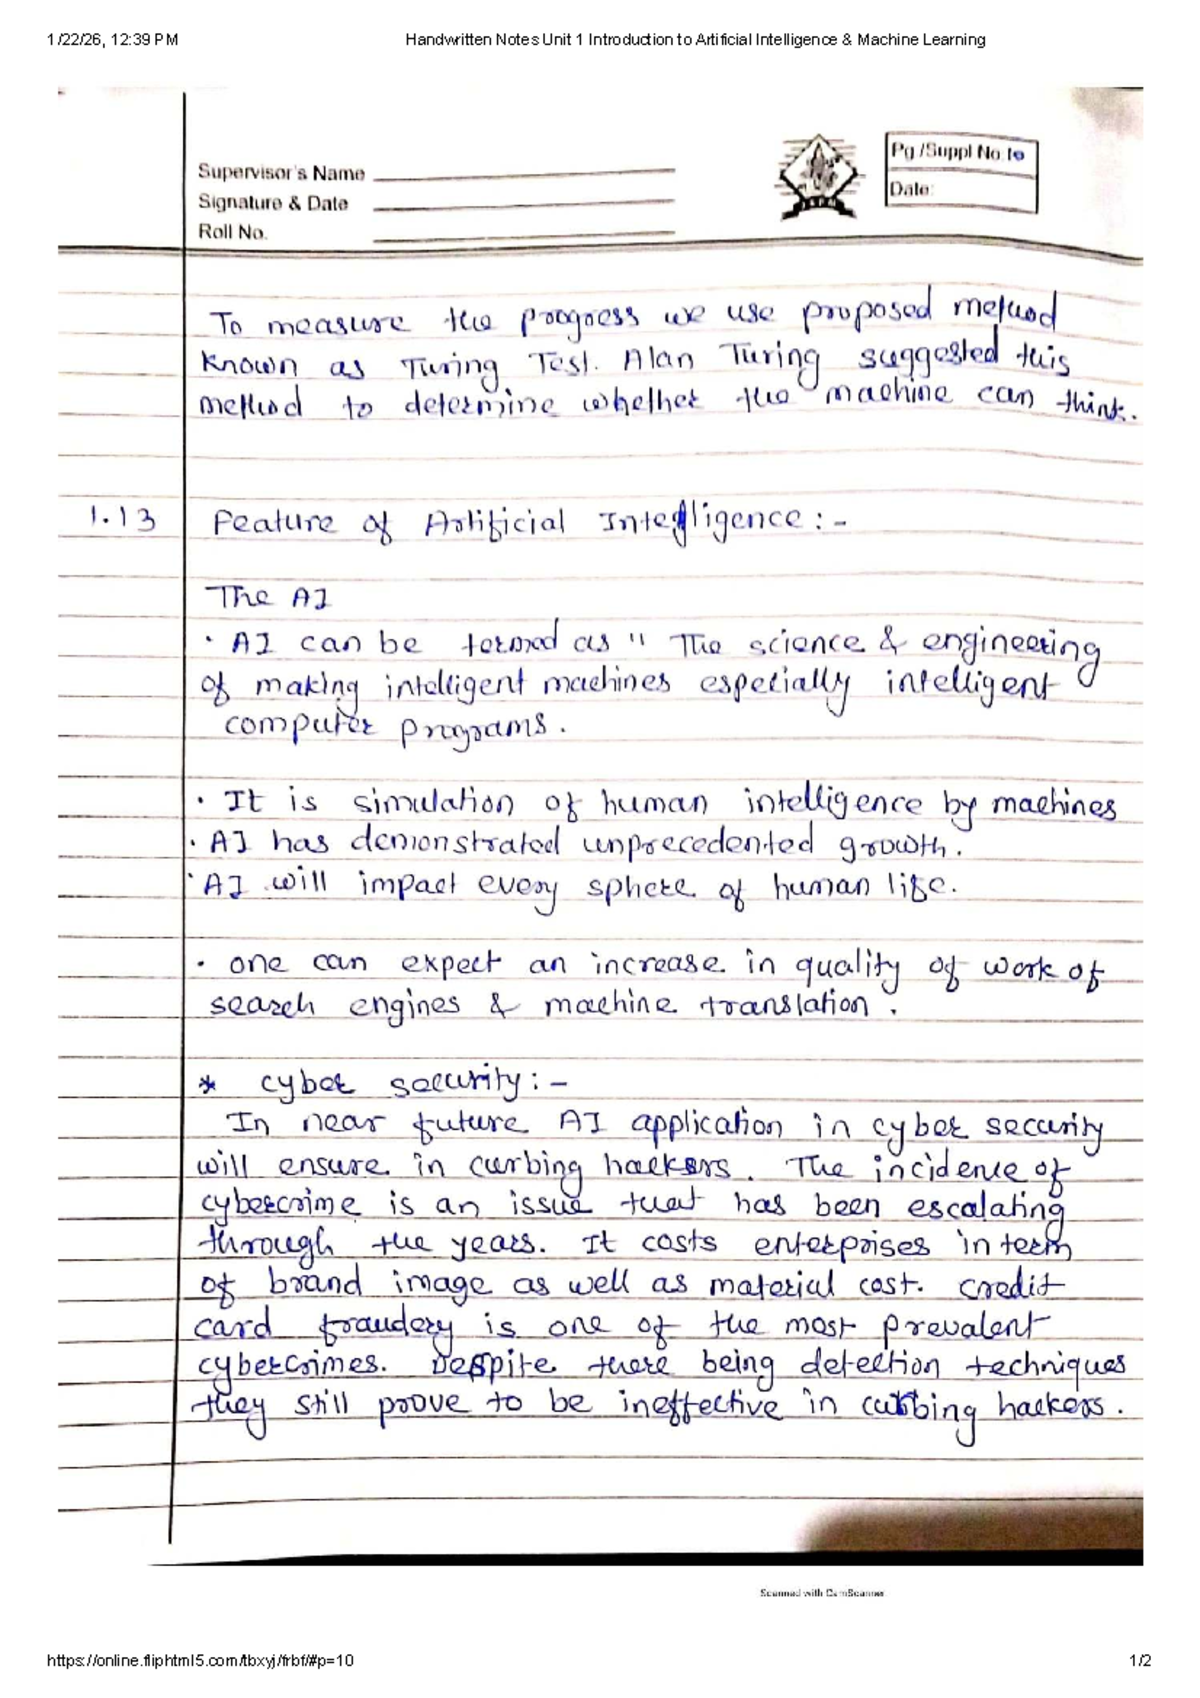 1/22/26, 12:39 PM Handwritten Notes Unit 1 Introduction to Artificial Intelligence & Machine Learning
Supervisor's Name
Signature & Date
Roll No.
Pg /Suppl No 10
Date:
To measure the progress we use proposed method
known as Turing Test. Alan Turing suggested this
method to determine whether the machine can think.
1.13 Feature of Artificial Intelligence :-
The AI
· AI can be termed as " The science & engineering
of making intelligent machines especially intelligent
computer programs.
· It is simulation of human intelligence by machines
· AI has demonstrated unprecedented growth.
· AI will impact every sphere of human life.
· one can expect an increase in quality of work of
search engines & machine translation.
* cyber security :-
In near future AI application in cyber security
will ensure in curbing hackers. The incidence of
cybercrime is an issue that has been escalating
through the years. It costs enterprises in term
of brand image as well as material cost. credit
card fraudery is one of the most prevalent
cybercrimes. Despite there being detection techniques
they still prove to be ineffective in curbing hackers.
Scanned with CamScanner
https://online.fliphtml5.com/tbxyj/frbf/#p=10 1/2